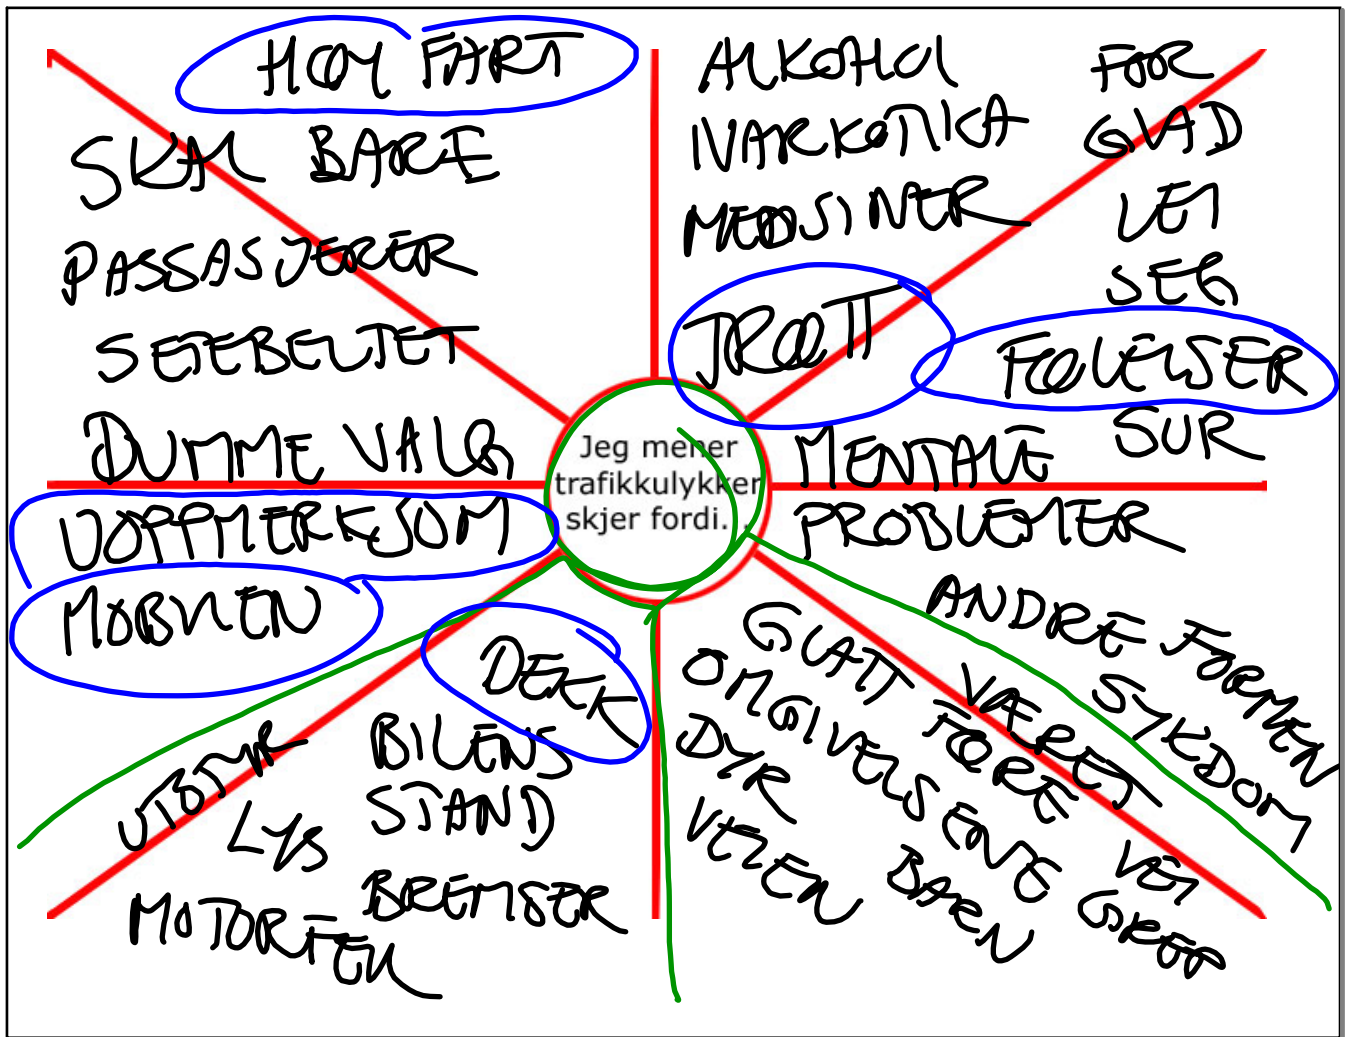 HØY FART
SKAL BARE
PASSASJERER
SETEBELTET
DUMME VALG
UOPPMERKSOM
MOBILEN
ALKOHOL
NARKOTIKA
MEDISINER
TRØTT
FOR
GLAD
LEI
SEG
FØLELSER
SUR
MENTALE
PROBLEMER
Jeg mener
trafikkulykker
skjer fordi...
ANDRE FORMEN
SYKDOM
GLATT FØRE
VÆRET
OMGIVELSENE
DYR
VEIEN
BARN
VEI
GREP
DEKK
BILENS
STAND
BREMSER
UTSTYR
LYS
MOTORFEIL